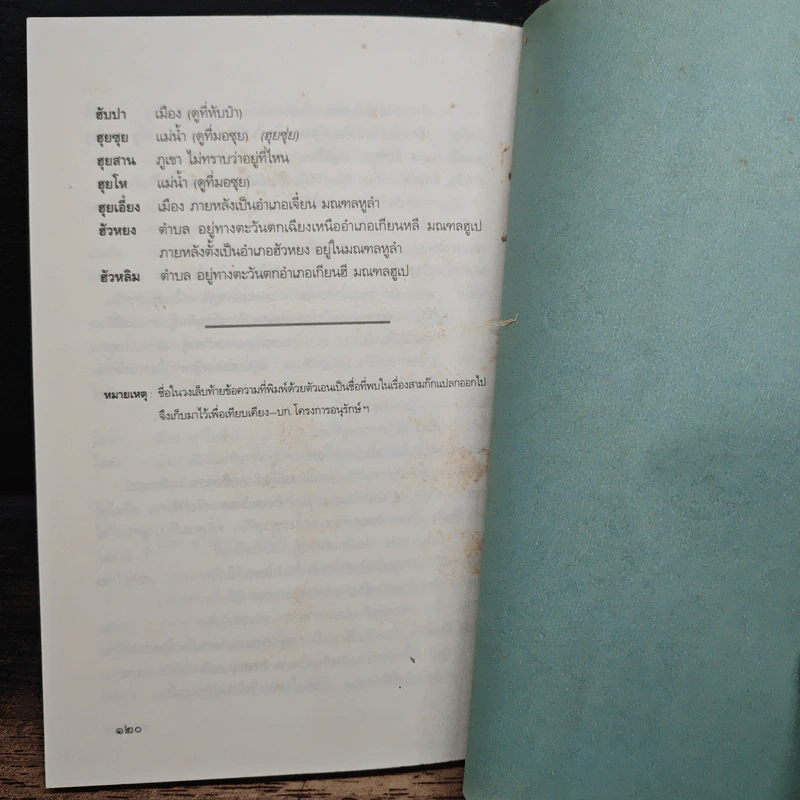 ฮับปา เมือง (ดูที่หับป๋า)
ฮุยซุย แม่น้ำ (ดูที่มอซุย) (ฮุยซุ่ย)
ฮุยสาน ภูเขา ไม่ทราบว่าอยู่ที่ไหน
ฮุยโห แม่น้ำ (ดูที่มอซุย)
ฮุยเอี๋ยง เมือง ภายหลังเป็นอำเภอเจี๋ยน มณฑลหูลำ
ฮัวหยง ตำบล อยู่ทางตะวันตกเฉียงเหนืออำเภอเกียนหลี มณฑลฮูเป
ภายหลังตั้งเป็นอำเภอฮัวหยง อยู่ในมณฑลหูลำ
ฮัวหลิม ตำบล อยู่ทางตะวันตกอำเภอเกียนฮี มณฑลฮูเป
หมายเหตุ : ชื่อในวงเล็บท้ายข้อความที่พิมพ์ด้วยตัวเอนเป็นชื่อที่พบในเรื่องสามก๊กแปลกออกไป
จึงเก็บมาไว้เพื่อเทียบเคียง–บก. โครงการอนุรักษ์ฯ
๑๒๐